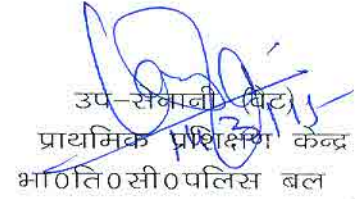 उप–सेनानी (वेट)
प्राथमिक प्रशिक्षण केन्द्र
भा0ति0सी0पुलिस बल